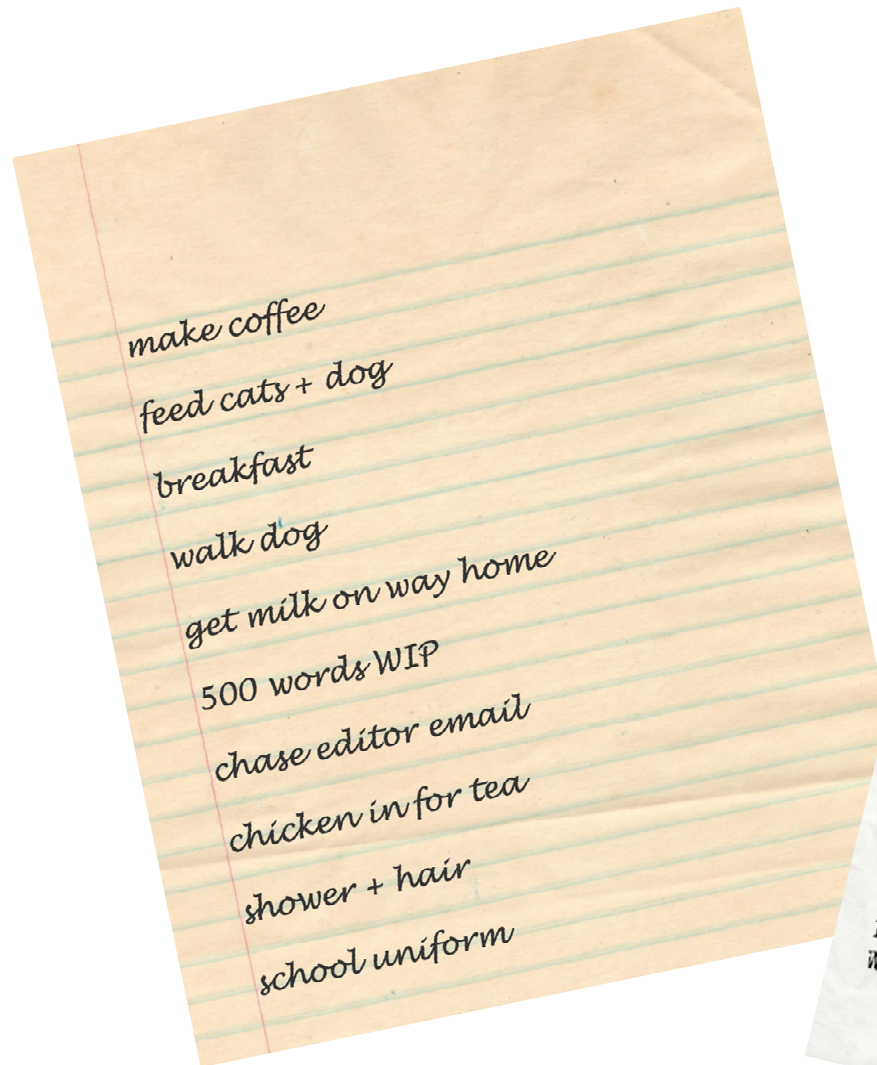 make coffee
feed cats + dog
breakfast
walk dog
get milk on way home
500 words WIP
chase editor email
chicken in for tea
shower + hair
school uniform